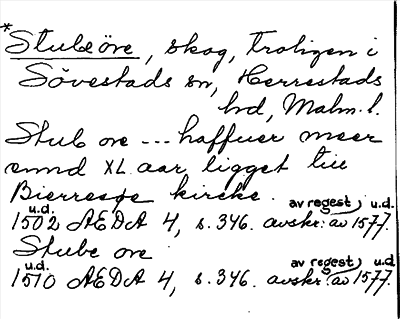 *Stubeöre, skog, troligen i
Sövestads sn, Herrestads
hd, Malm. l.
Stub ore --- haffuer meer
ennd XL aar ligget till
Bierresøe kirche.
u.d. av regest) u.d.
1502 AEDA 4, s. 346. avskr. av 1577.
Stube ore
u.d. av regest) u.d.
1510 AEDA 4, s. 346. avskr. av 1577.